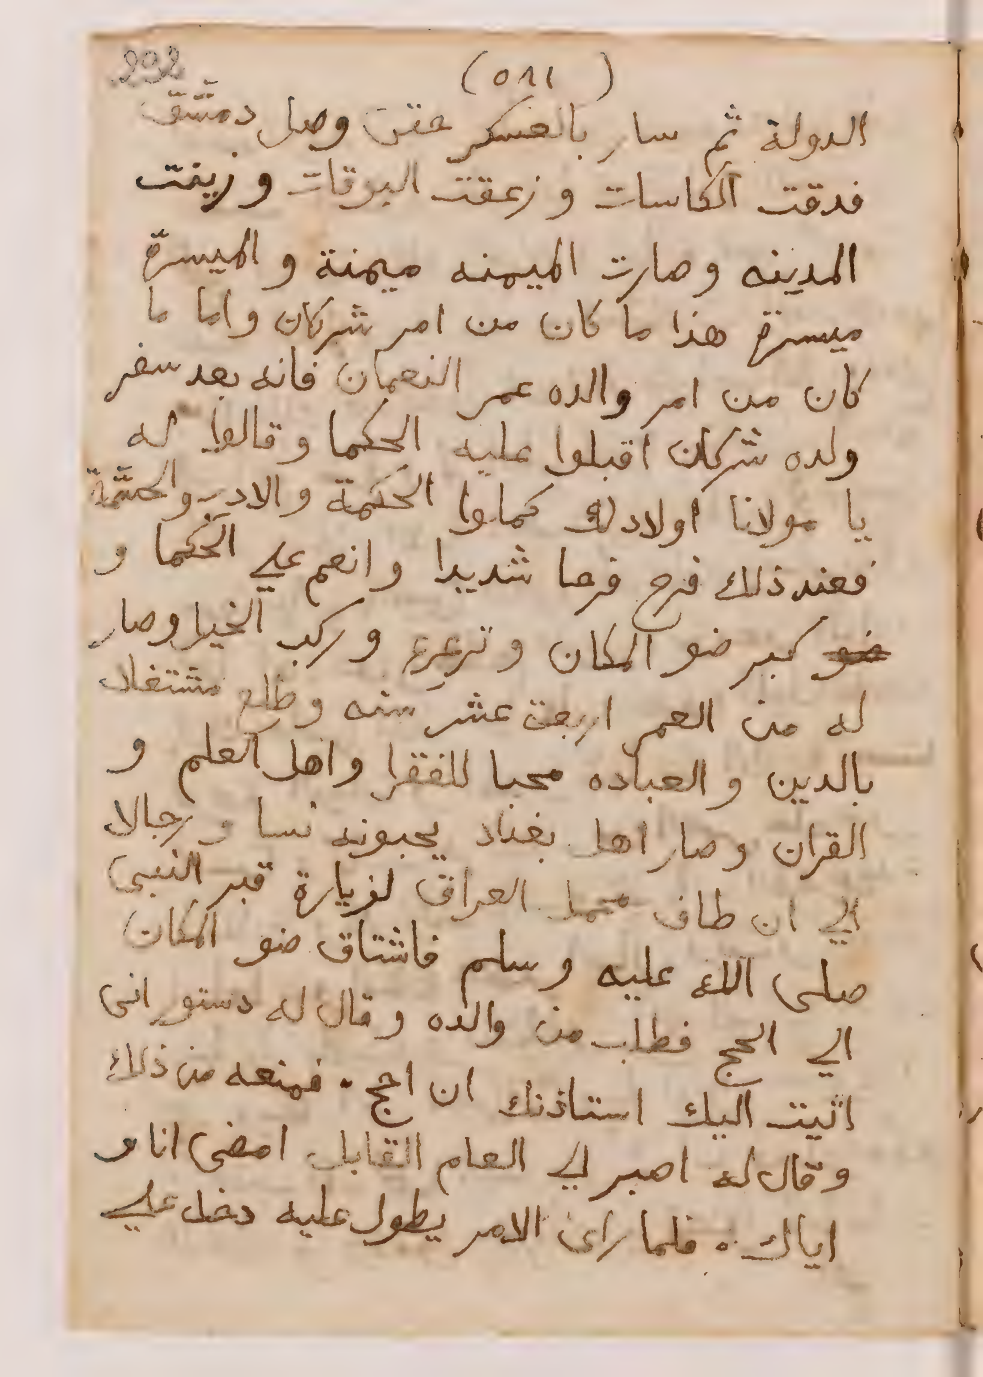 292
(٥٨١)
الدولة ثم سار بالعسكر حتى وصل دمشق
فدقت الكاسات و زعقت البوقات و زينت
المدينه وصارت الميمنه ميمنة و الميسرة
ميسرة هذا ما كان من امر شركان واما ما
كان من امر والده عمر النعمان فانه بعد سفر
ولده شركان اقبلوا عليه الحكما وقالوا له
يا مولانا اولادك كملوا الحكمة والادب والحشمة
فعند ذلك فرح فرحا شديدا وانعم علي الحكما و
ضو كبر ضو المكان وترعرع وركب الخيل وصار
له من العمر اربعة عشر سنه وطلع مشتغلا
بالدين و العباده محبا للفقرا واهل العلم و
القران وصار اهل بغداد يحبونه نسا و رجالا
الي ان طاف محمل العراق لزيارة قبر النبي
صلى الله عليه وسلم فاشتاق ضو المكان
الي الحج فطلب من والده وقال له دستور انى
اتيت اليك استاذنك ان احج . فمنعه من ذلك
وقال له اصبر لي العام القابل امضى انا و
اياك . فلما راى الامر يطول عليه دخل علي